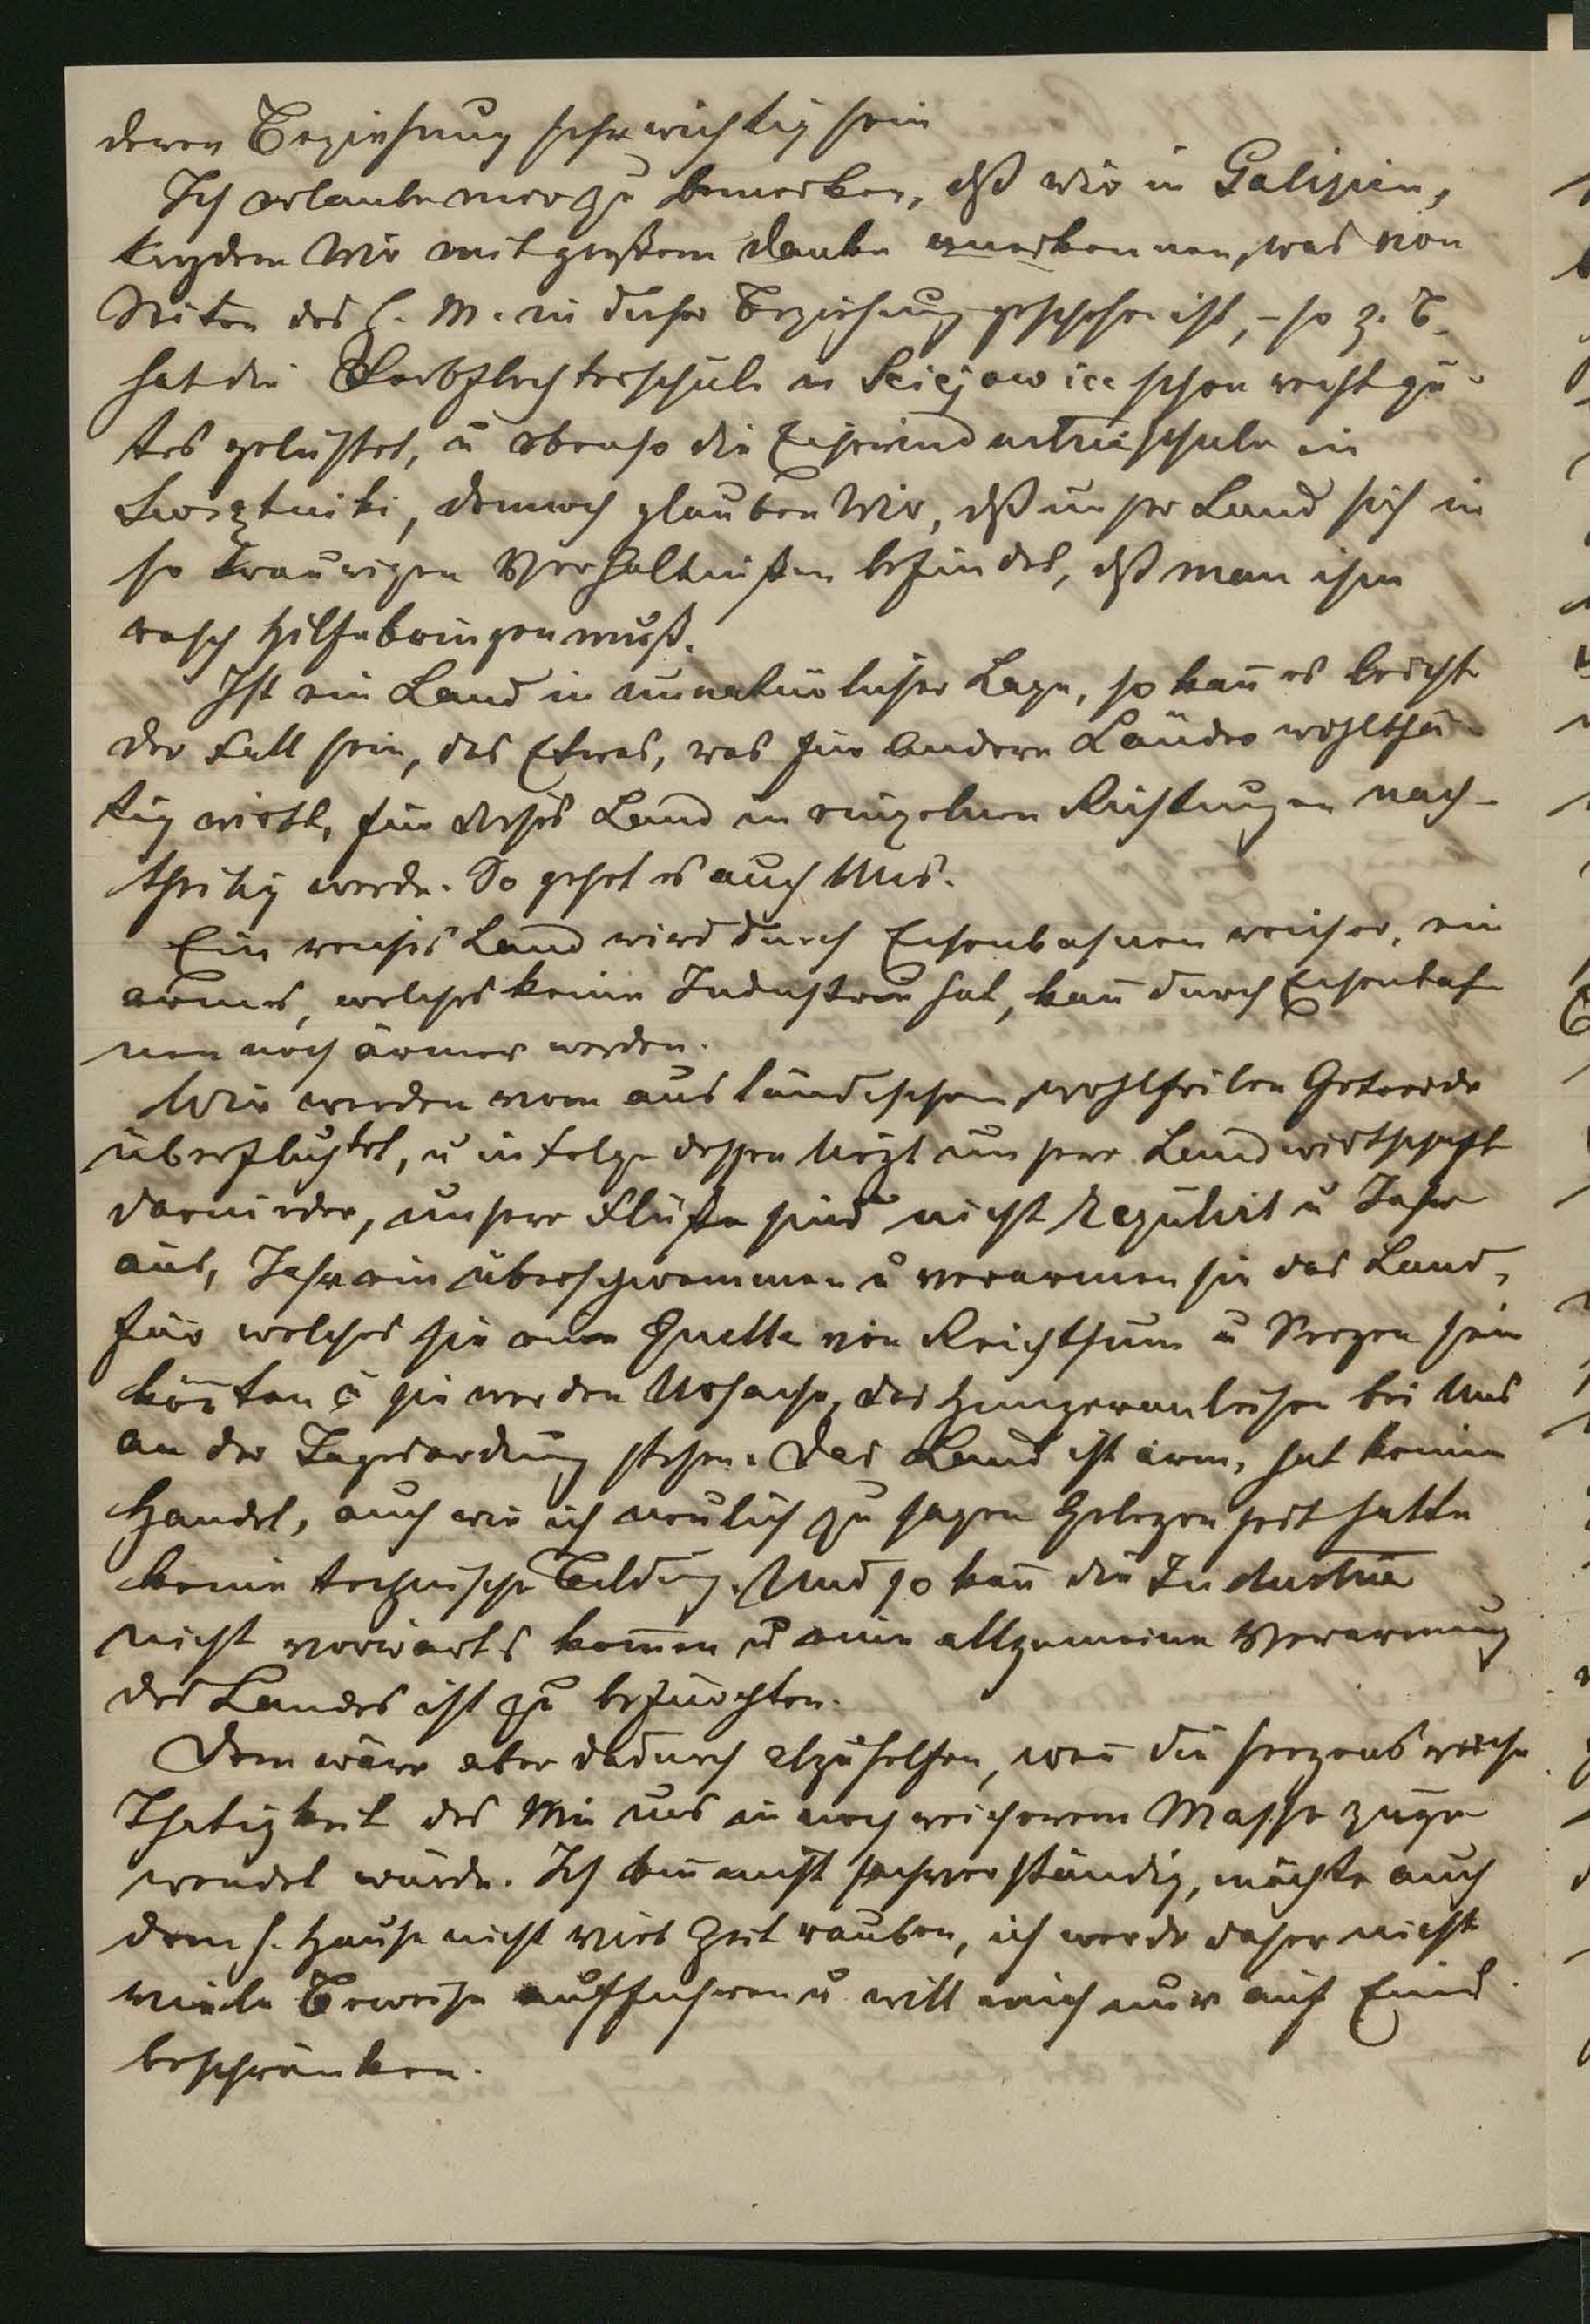 deren Beziehung sehr wichtig sein
Ich erlaube mir zu bemerken, dß wir in Galizien,
trozdem Wir mit großem Danke anerkennen, was von
Seiten des h. M. in dieser Beziehung geschehen ist, – so z. B.
hat die Korbflechterschule in Sciejowice schon recht gu-
tes geleistet, u ebenso die Eisenindustrieschule in
, dennoch glauben Wir, dß unser Land sich in
so traurigen Verhältnißen befindet, dß man ihm
rasch Hilfe bringen muß.
Ist ein Land in unnatürlicher Lage, so kan̄ es leicht
der Fall sein, das Etwas, was für andere Länder wohlthä-
tig wirkt, für dieses Land in einzelnen Richtungen nach-
theilig werde. So gehet es auch Uns.
Ein reiches Land wird durch Eisenbahnen reicher, ein
armes, welches keine Industrie hat, kan̄ durch Eisenbah-
nen noch ärmer werden.
Wir werden vom ausländischem, wohlfeilen Getreide
überfluthet, u in folge dessen liegt unsere Landwirtschaft
darnieder, unsere Flüße sind nicht regulirt u Jahr
aus, Jahr ein überschwemmen u verarmen sie das Land,
für welches sie eine Quelle von Reichthum u Seegen sein
kön̄ten u sie werden Ursache, das Hungeranleihen bei Uns
an der Tagesordnung stehen. Das Land ist arm, hat keinen
Handel, auch wie ich neulich zu sagen Gelegenheit hatte
keine technische Bildung. Und so kan̄ die Industrie
nicht vorwärts kom̄en u eine allgemeine Verarmung
des Landes ist zu befürchten.
Dem wäre aber dadurch abzuhelfen, wen̄ die seegensreiche
Thätigkeit des Min uns in noch reicherem Masse zuge-
wendet würde. Ich bin nicht sachverständig, möchte auch
dem h. Hause nicht viel Zeit rauben, ich werde daher nicht
viele Beweise aufführen u will mich nur auf Eines
beschränken.